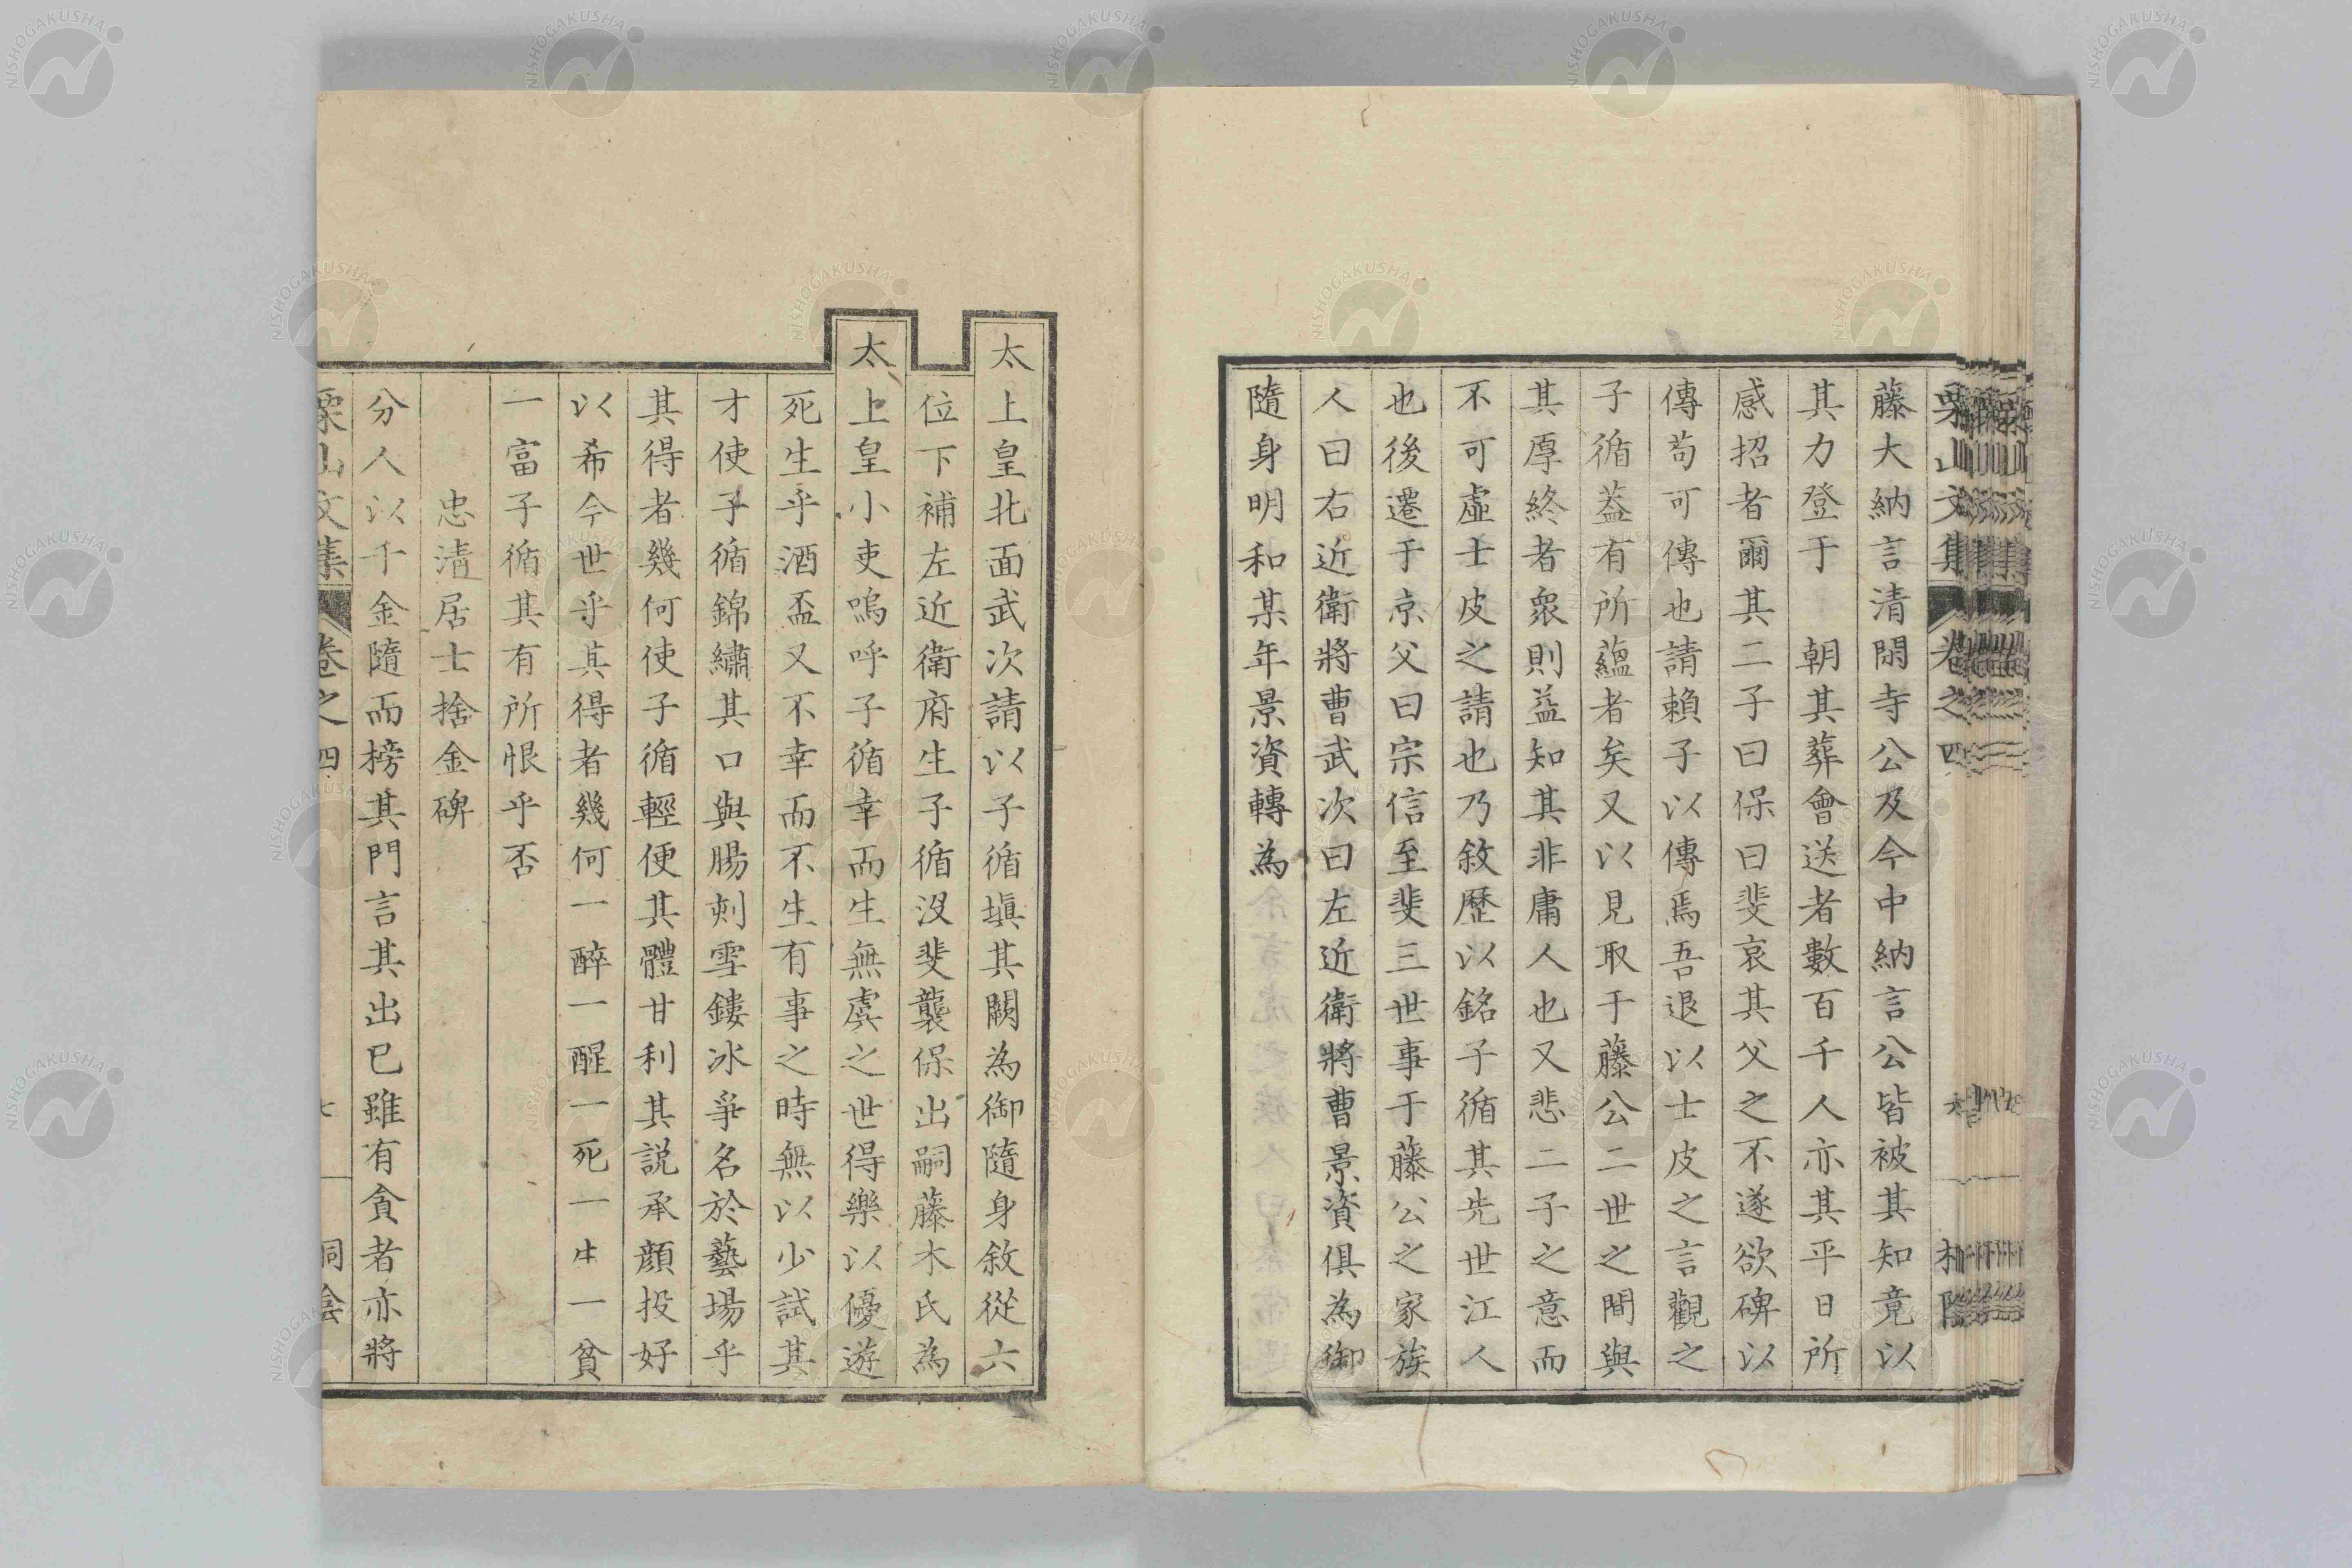 栗山文集 卷之四 六
藤大納言清閑寺公及今中納言公皆被其知竟以
其力登于 朝其葬會送者數百千人亦其平日所
感招者爾其二子曰保曰斐哀其父之不遂欲碑以
傳苟可傳也請賴子以傳焉吾退以士皮之言觀之
子循蓋有所蘊者矣又以見取于藤公二世之間與
其厚終者衆則益知其非庸人也又悲二子之意而
不可虛士皮之請也乃敘歷以銘子循其先世江人
也後遷于京父曰宗信至斐三世事于藤公之家族
人曰右近衛將曹武次曰左近衛將曹景資俱為御
隨身明和某年景資轉為
太上皇北面武次請以子循塡其闕為御隨身敘從六
位下補左近衛府生子循沒斐襲保出嗣藤木氏為
太上皇小吏嗚呼子循幸而生無虞之世得樂以優遊
死生乎酒盃又不幸而不生有事之時無以少試其
才使子循錦繡其口與腸刺雪鏤冰爭名於藝場乎
其得者幾何使子循輕便其體甘利其說承顏投好
以希今世乎其得者幾何一醉一醒一死一生一貧
一富子循其有所恨乎否
忠淸居士捨金碑
分人以千金隨而榜其門言其出已雖有貪者亦將
栗山文集 卷之四 七 桐陰
NISHOGAKUSHA